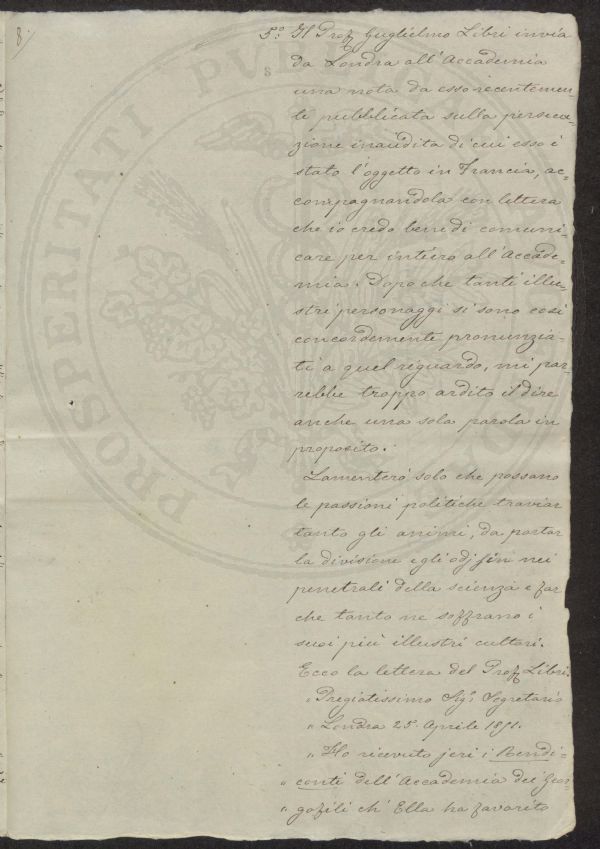 8.
5º. Il Prof. Guglielmo Libri invia
da Londra all'Accademia
una nota da esso recentemen-
te pubblicata sulla persecu-
zione inaudita di cui esso è
stato l'oggetto in Francia, ac-
compagnandola con lettera
che io credo bene di comuni-
care per intiero all'Accade-
mia. Dopo che tanti illu-
stri personaggi si sono così
concordemente pronunzia-
ti a quel riguardo, mi par-
rebbe troppo ardito il dire
anche una sola parola in
proposito.
Lamenterò solo che possano
le passioni politiche traviar
tanto gli animi, da portar
la divisione e gli odj fin nei
penetrali della scienza e far
che tanto ne soffrano i
suoi più illustri cultori.
Ecco la lettera del Prof. Libri.
" Pregiatissimo Sigr. Segretario
" Londra 25. Aprile 1851.
" Ho ricevuto jeri i Rendi-
" conti dell'Accademia dei Geor-
" gofili ch'Ella ha favorito
PROSPERITATI PUBLICAE